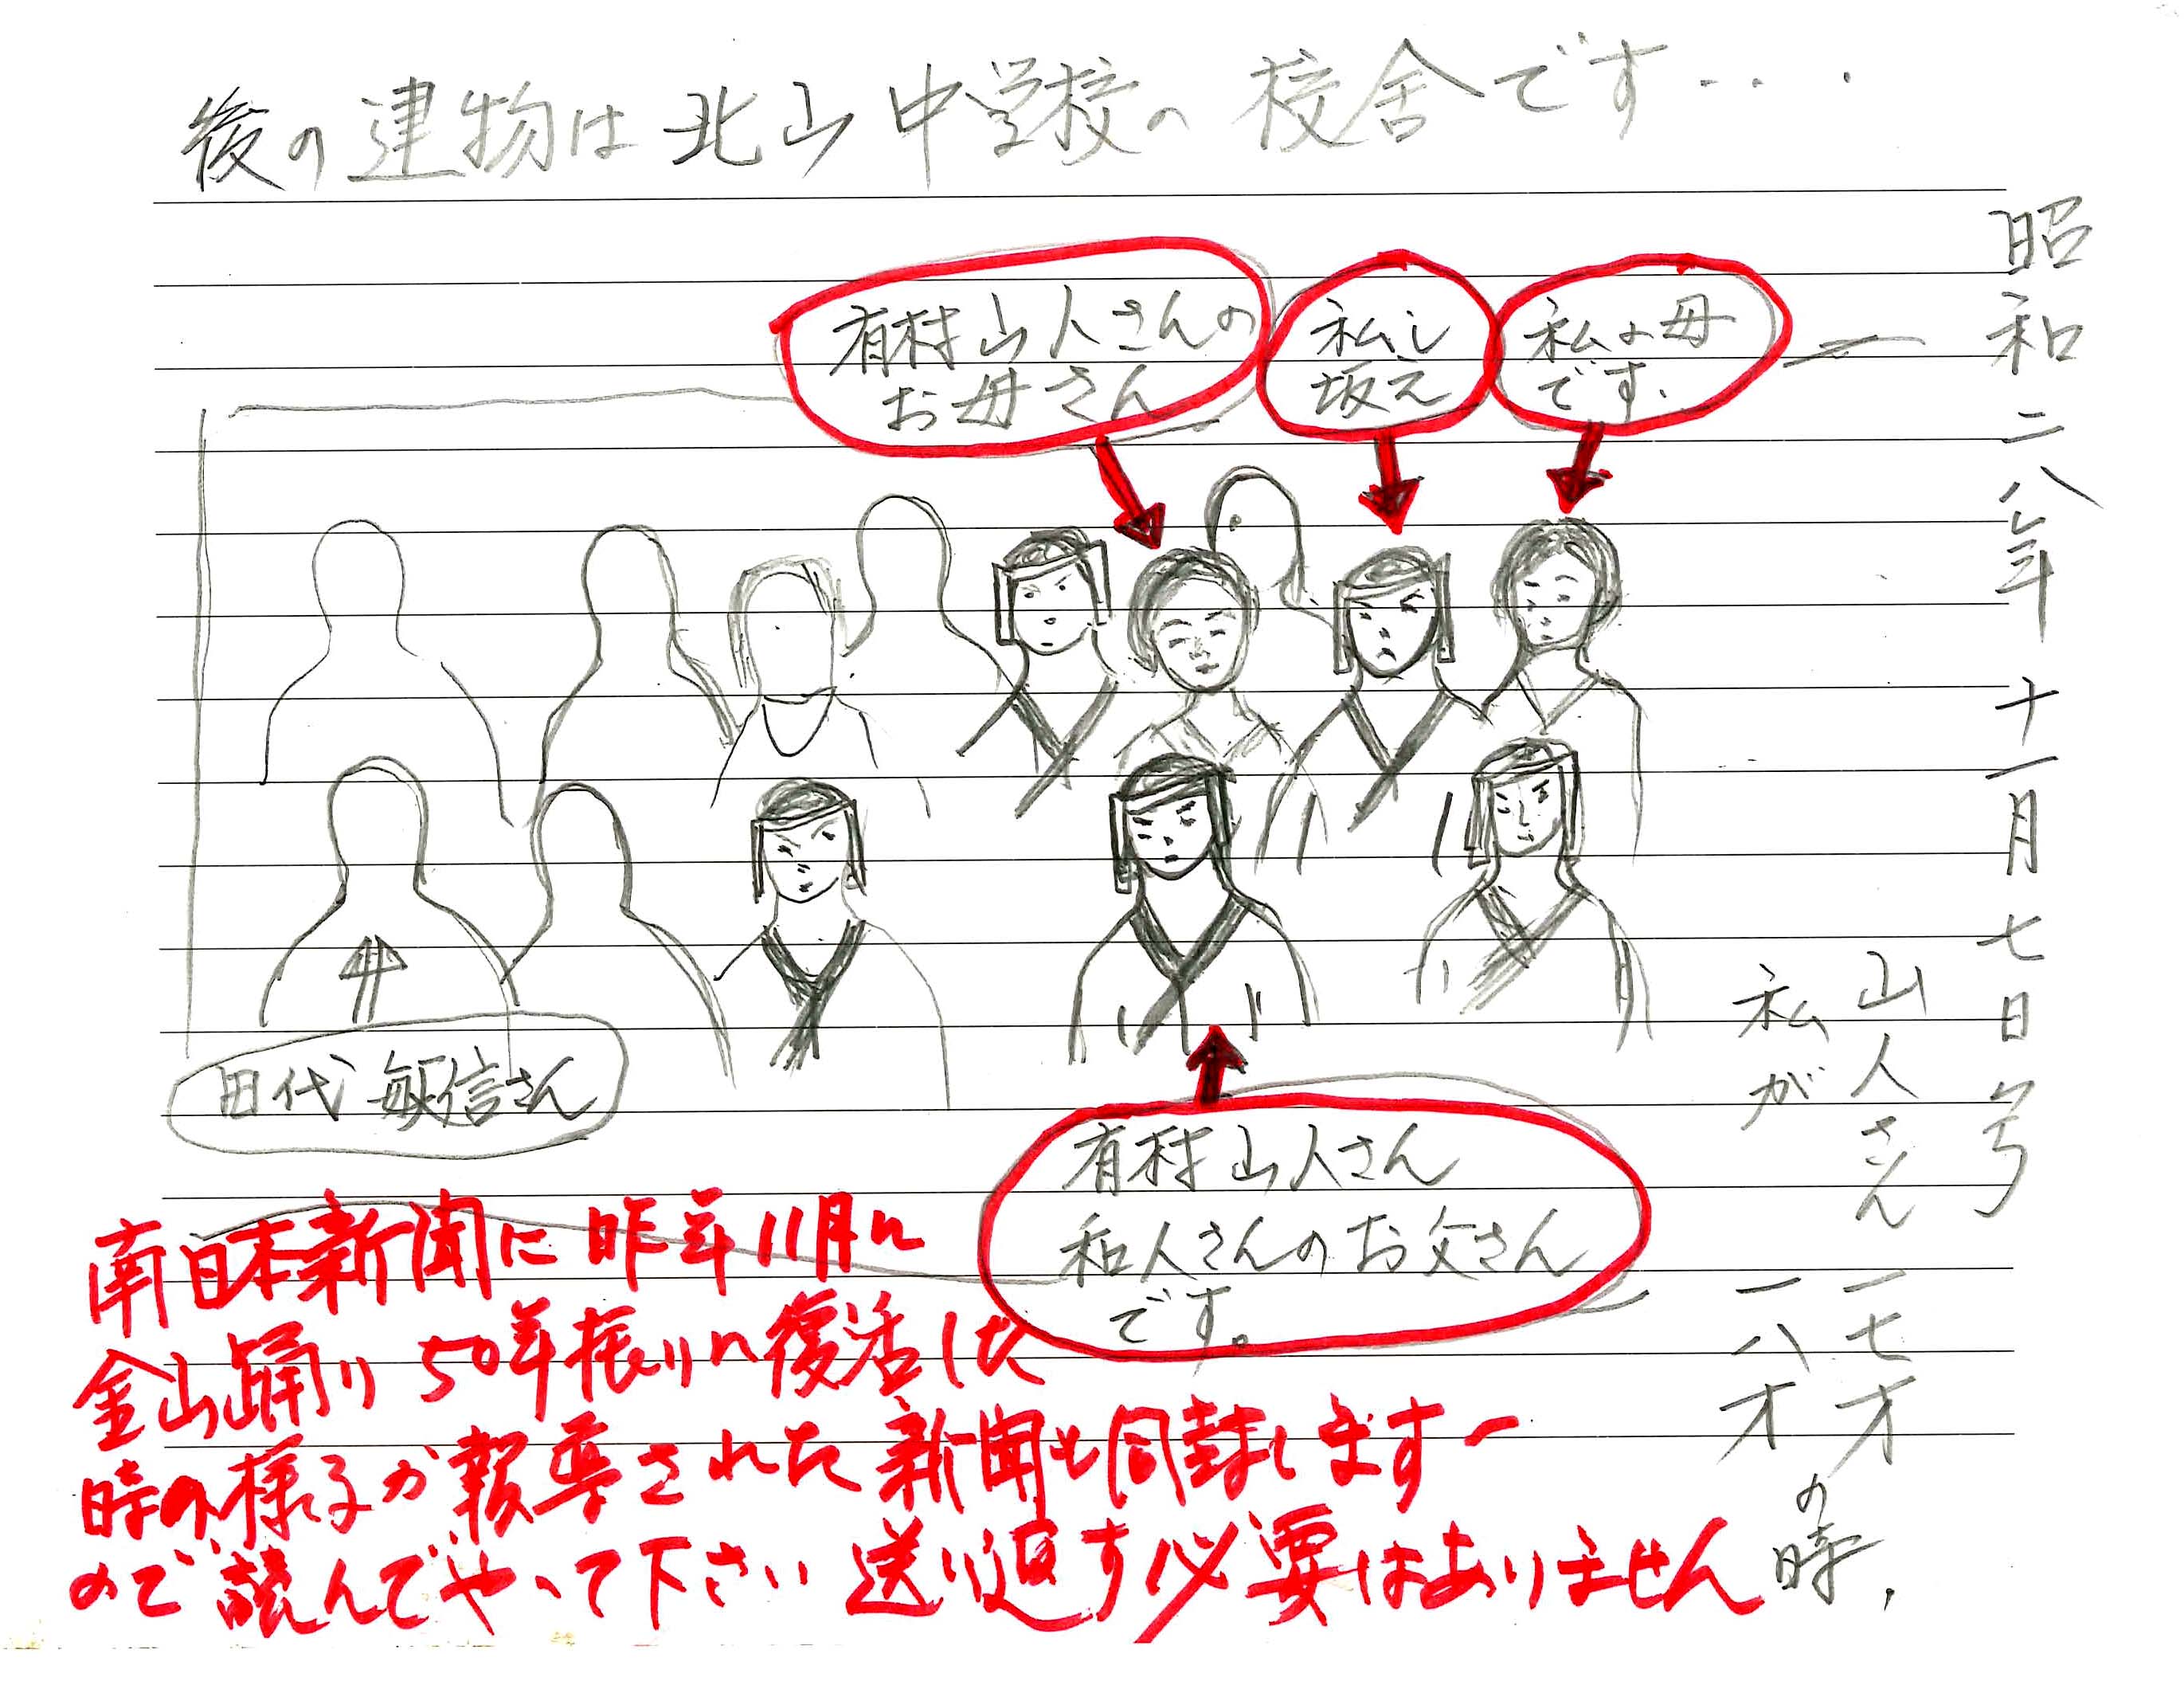 後の建物は北山中学校の校舎です‥‥
昭和二八年十一月七日
有村山人さんの
お母さん
私し
坂元
私の母
です.
山人さん 一七才
私が 一八才
の時,
田代 敏信さん
有村山人さん
和人さんのお父さん
です。
南日本新聞に昨年11月に
金山踊り50年振りに復活した
時の様子が報導された新聞も同封します
ので読んでやって下さい送り返す必要はありません